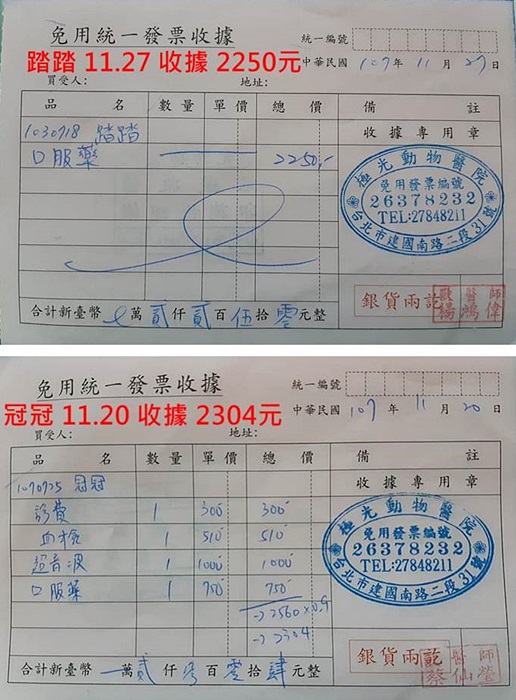 免用統一發票收據
統一編號
踏踏 11.27 收據 2250元
中華民國 107年 11月 27日
買受人:
地址:
品名 數量 單價 總價 備註
1030918 踏踏
收據專用章
口服藥 2250.-
極光動物醫院
免用發票編號
26378232
TEL:27848211
台北市建國南路二段31號
銀貨兩訖
合計新臺幣 萬貳仟貳百伍拾零元整
免用統一發票收據
統一編號
冠冠 11.20 收據 2304元
中華民國 107年 11月 20日
買受人:
地址:
品名 數量 單價 總價 備註
1070725 冠冠
收據專用章
診費 1 300 300
血檢 1 510 510
超音波 1 1000 1000
口服藥 1 750 750
→2560×0.9
→2304
極光動物醫院
免用發票編號
26378232
TEL:27848211
台北市建國南路二段31號
銀貨兩訖
合計新臺幣 萬貳仟百零拾肆元整